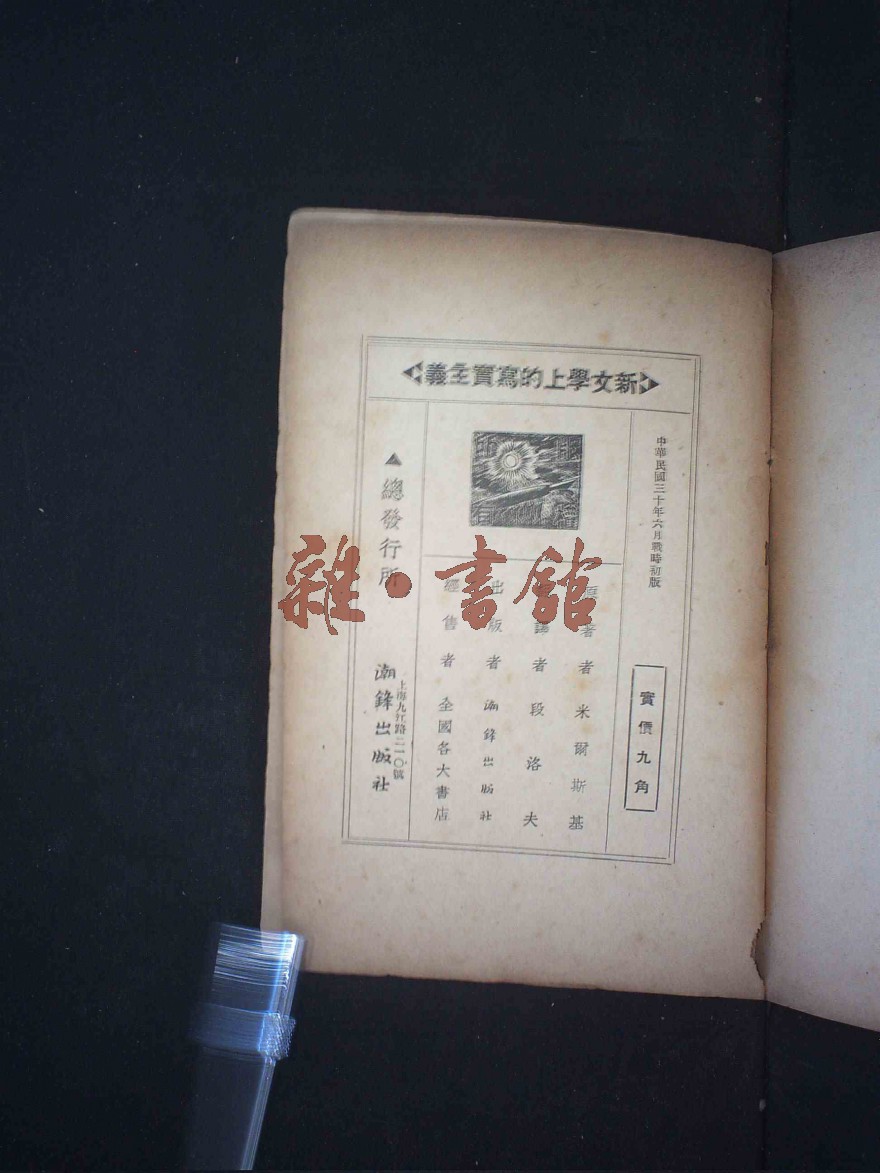 新文學上的寫實主義
中華民國三十年六月戰時初版
實價九角
原著者 米爾斯基
譯者 段洛夫
出版者 潮鋒出版社
經售者 全國各大書店
▲總發行所 潮鋒出版社
上海九江路二一〇號
雜·書館